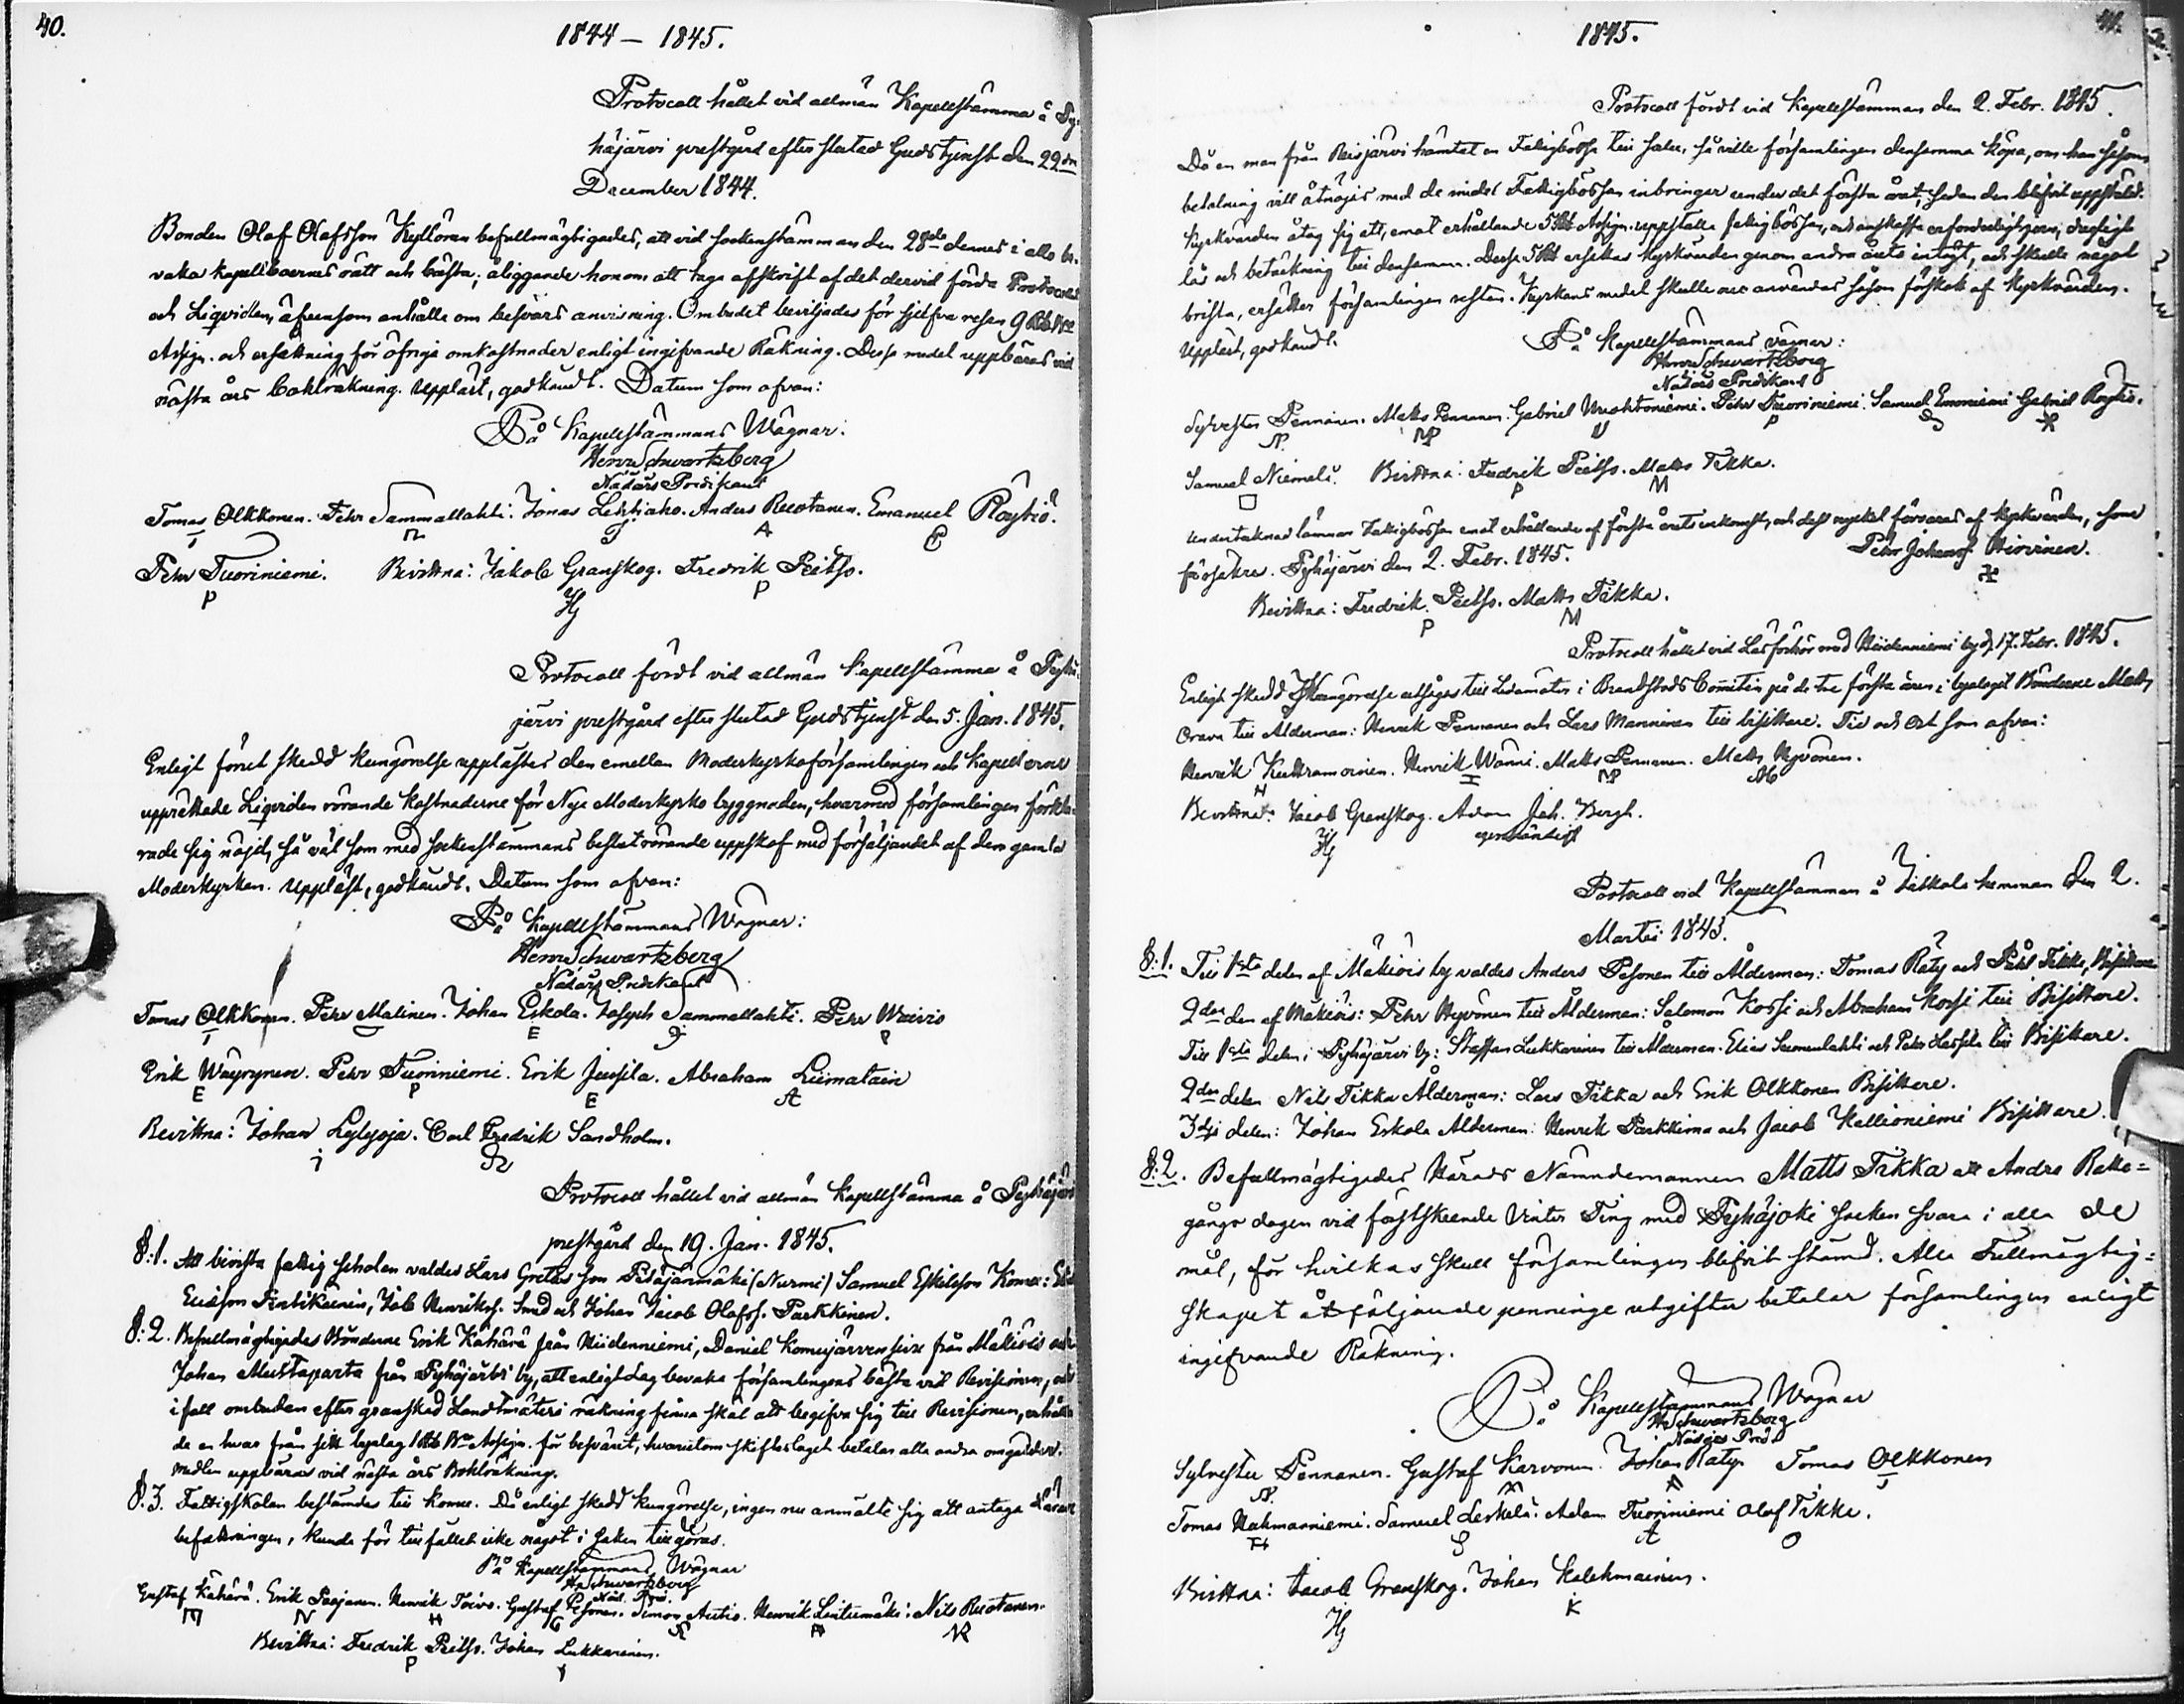 40.
1844 – 1845.
Protocoll hållet vid allmän Kapellstämma å Py-
häjärvi prestgård efter slutad Gudstjenst den 29de
December 1844.
Bonden Olof Olofsson Kyllönen befullmägtigades, att vid sockenstämman den 28de dennes i allo be-
vaka kapellboernes rätt och bästa; åliggande honom att taga afskrift af det dervid förda Protocoll
och Liqviden, äfvensom anhålla om besvärs anvisning. Ombudet beviljades för sjelfva resan 9 Rub. Bco
Assign. och ersättning för öfriga omkostnader enligt ingifvande Räkning. Desse medel uppbäras vid
nästa års Bokräkning. Uppläst, godkändt. Datum som ofvan:
På Kapellstämmans Wägnar:
Henr. Schwartzberg
Nådårs Predikant
Tomas Olkkonen. Pehr Sammallahti. Jonas Lehtiaho. Anders Ruotanen. Emanuel Röytiö.
T A E
Pehr Tuoriniemi. Bevittna: Jakob Granskog. Fredrik Peitso.
P JG P
Protocoll fördt vid allmän Kapellstämma å Pyhä-
järvi prestgård efter slutad Gudstjenst den 5. Jan. 1845.
Enligt förut skedd kungörelse upplästes den emellan Moderkyrkoförsamlingen och Kapellerne
upprättade Liqviden rörande kostnaderne för Nya Moderkyrko byggnaden, hvarmed församlingen förkla-
rade sig nöjd, så väl som med sockenstämmans beslut rörande uppskof med försäljandet af den gamla
Moderkyrkan. Uppläst, godkändt. Datum som ofvan:
På Kapellstämmans Wägnar:
Henr. Schwartzberg
Nådårs Predikant
Tomas Olkkonen. Pehr Malinen. Johan Eskola. Joseph Sammallahti. Pehr Waivio
T E P
Erik Wäyrynen. Pehr Tuoriniemi. Erik Jussila. Abraham Liimatain
E P E A
Bevittna: Johan Lylyoja. Carl Fredrik Sandholm.
j
Protocoll hållet vid allmän Kapellstämma å Pyhäjärvi
prestgård den 19. Jan. 1845.
§:1. Att bevista fattig scholan valdes Lars Gretas son Pitäjänmäki (Nurmi) Samuel Eskilsson Komu:
Ericsson Pentikäinen, Job Henriks. Smed och Johan Jacob Olofss. Parkkinen.
§:2. Befullmägtigades Bönderne Erik Kähärä från Hiidenniemi, Daniel Komujärvensivu från Mäkiöis och
Johan Mustaparta från Pyhäjärvi by, att enligt Lag bevaka församlingens bästa vid Revisionen, och
ifall ombuden efter granskad Landtmäteri räkning finna skäl att begifva sig till Revisionen, erhålla
de en hvar från sitt byalag 1 Rub. Bco Assign. för besväret, hvarutom skifteslaget betalar alla andra omgälder.
Medlen uppbäras vid nästa års Bokräkning.
§:3. Fattigskolan bestämdes till Komu. Då enligt skedd kungörelse, ingen nu anmälte sig att antaga Lärare
befattningen, kunde för tillfället icke något i saken tillgöras.
På Kapellstämmans Wägnar
Hr. Schwartzberg
Nåd. Pred.
Gustaf Kähärä. Erik Paajanen. Henrik Toivo. Gustaf Pesonen. Simon Autio. Henrik Lintumäki: Nils Ruotanen.
N H G
Bevittna: Fredrik Peitso. Johan Lukkarinen.
P
1845.
41.
Protocoll fördt vid Kapellstämman den 2. Febr. 1845.
Då en man från Reisjärvi hämtat en Fattigbössa till salu, så ville församlingen densamma köpa, om han såsom
betalning vill åtnöjas med de medel Fattigbössan inbringar under det första året, sedan den blifvit uppställd.
Kyrkvärden åtog sig att, emot erhållande 5 Rub. Assign. uppställa fattigbössan, och anskaffa erforderligt jern, dugligt
lås och betäckning till densamma. Desse 5 Rub. ersättas kyrkvärden genom andra årets intägt, och skulle något
brista, ersätter församlingen resten. Kyrkans medel skulle nu användas såsom förskott af kyrkvärden.
Uppläst, godkändt. På Kapellstämmans vägnar:
Henr. Schwartzberg
Nådårs Predikant
Sylvester Pennanen. Matts Pennanen. Gabriel Uuskoniemi. Pehr Tuoriniemi. Samuel Emoniemi Gabriel Röytiö.
P
Samuel Niemelä. Bevittna: Fredrik Peitso. Matts Tikka.
P M
Undertecknad lämnar Fattigbössan emot erhållande af första årets inkomst, och dess nyckel förvaras af kyrkvärden, som
försäkras. Pyhäjärvi den 2. Febr. 1845. Pehr Johanss. Hirvinen.
Bevittna: Fredrik Peitso. Matts Tikka.
P M
Protocoll hållet vid Läsförhör med Hiidenniemi by d. 17. Febr. 1845.
Enligt skedd Kungörelse utsågos till Ledamöter i Brandstods Comitéen på de tre första åren i byalaget Bönderne Matts
Orava till Ålderman: Henrik Pennanen och Lars Manninen till bisittare. Tid och Ort som ofvan:
Henrik Kuttramoinen. Henrik Wänni. Matts Pennanen. Matts Hyvönen.
H
Bevittna: Jacob Granskog. Adam Joh. Bergh.
JG egenhändigt
Protocoll vid Kapellstämman å Jatkola hemman den 2.
Martii 1845.
§:1. Till 1sta delen af Mäkiöis by valdes Anders Pesonen till Ålderman: Tomas Räty och Påhl Tikka, Bisittare
2dra den af Mäkiöis: Pehr Hyvönen till Ålderman: Salomon Kossi och Abraham Kossi till Bisittare.
Till 1sta delen i Pyhäjärvi by: Staffan Lukkarinen till Ålderman. Elias Suomenlahti och Pehr Lassila till Bisittare.
2dra delen Nils Tikka Ålderman: Lars Tikka och Erik Olkkonen Bisittare.
3dje delen: Johan Eskola Ålderman: Henrik Parkkima och Jacob Kallioniemi Bisittare.
§:2. Befullmägtigades Härads Nämndemannen Matts Tikka att Andra Rätte=
gångs dagen vid förstskeende Vinter Ting med Pyhäjoki socken svara i alla de
mål, för hvilkas skull församlingen blifvit stämd. Alla Fullmägtig=
skapet åtföljande penninge utgifter betalar församlingen enligt
ingifvande Räkning.
På Kapellstämmans Wägnar
Hr Schwartzberg
Nådårs Pred.
Sylvester Pennanen. Gustaf Karvonen. Johan Räty. Tomas Olkkonen
T
Tomas Hukmanniemi. Samuel Leskelä. Adam Tuoriniemi Olof Tikka.
H S A O
Bevittna: Jacob Granskog. Johan Kalehmainen.
JG K